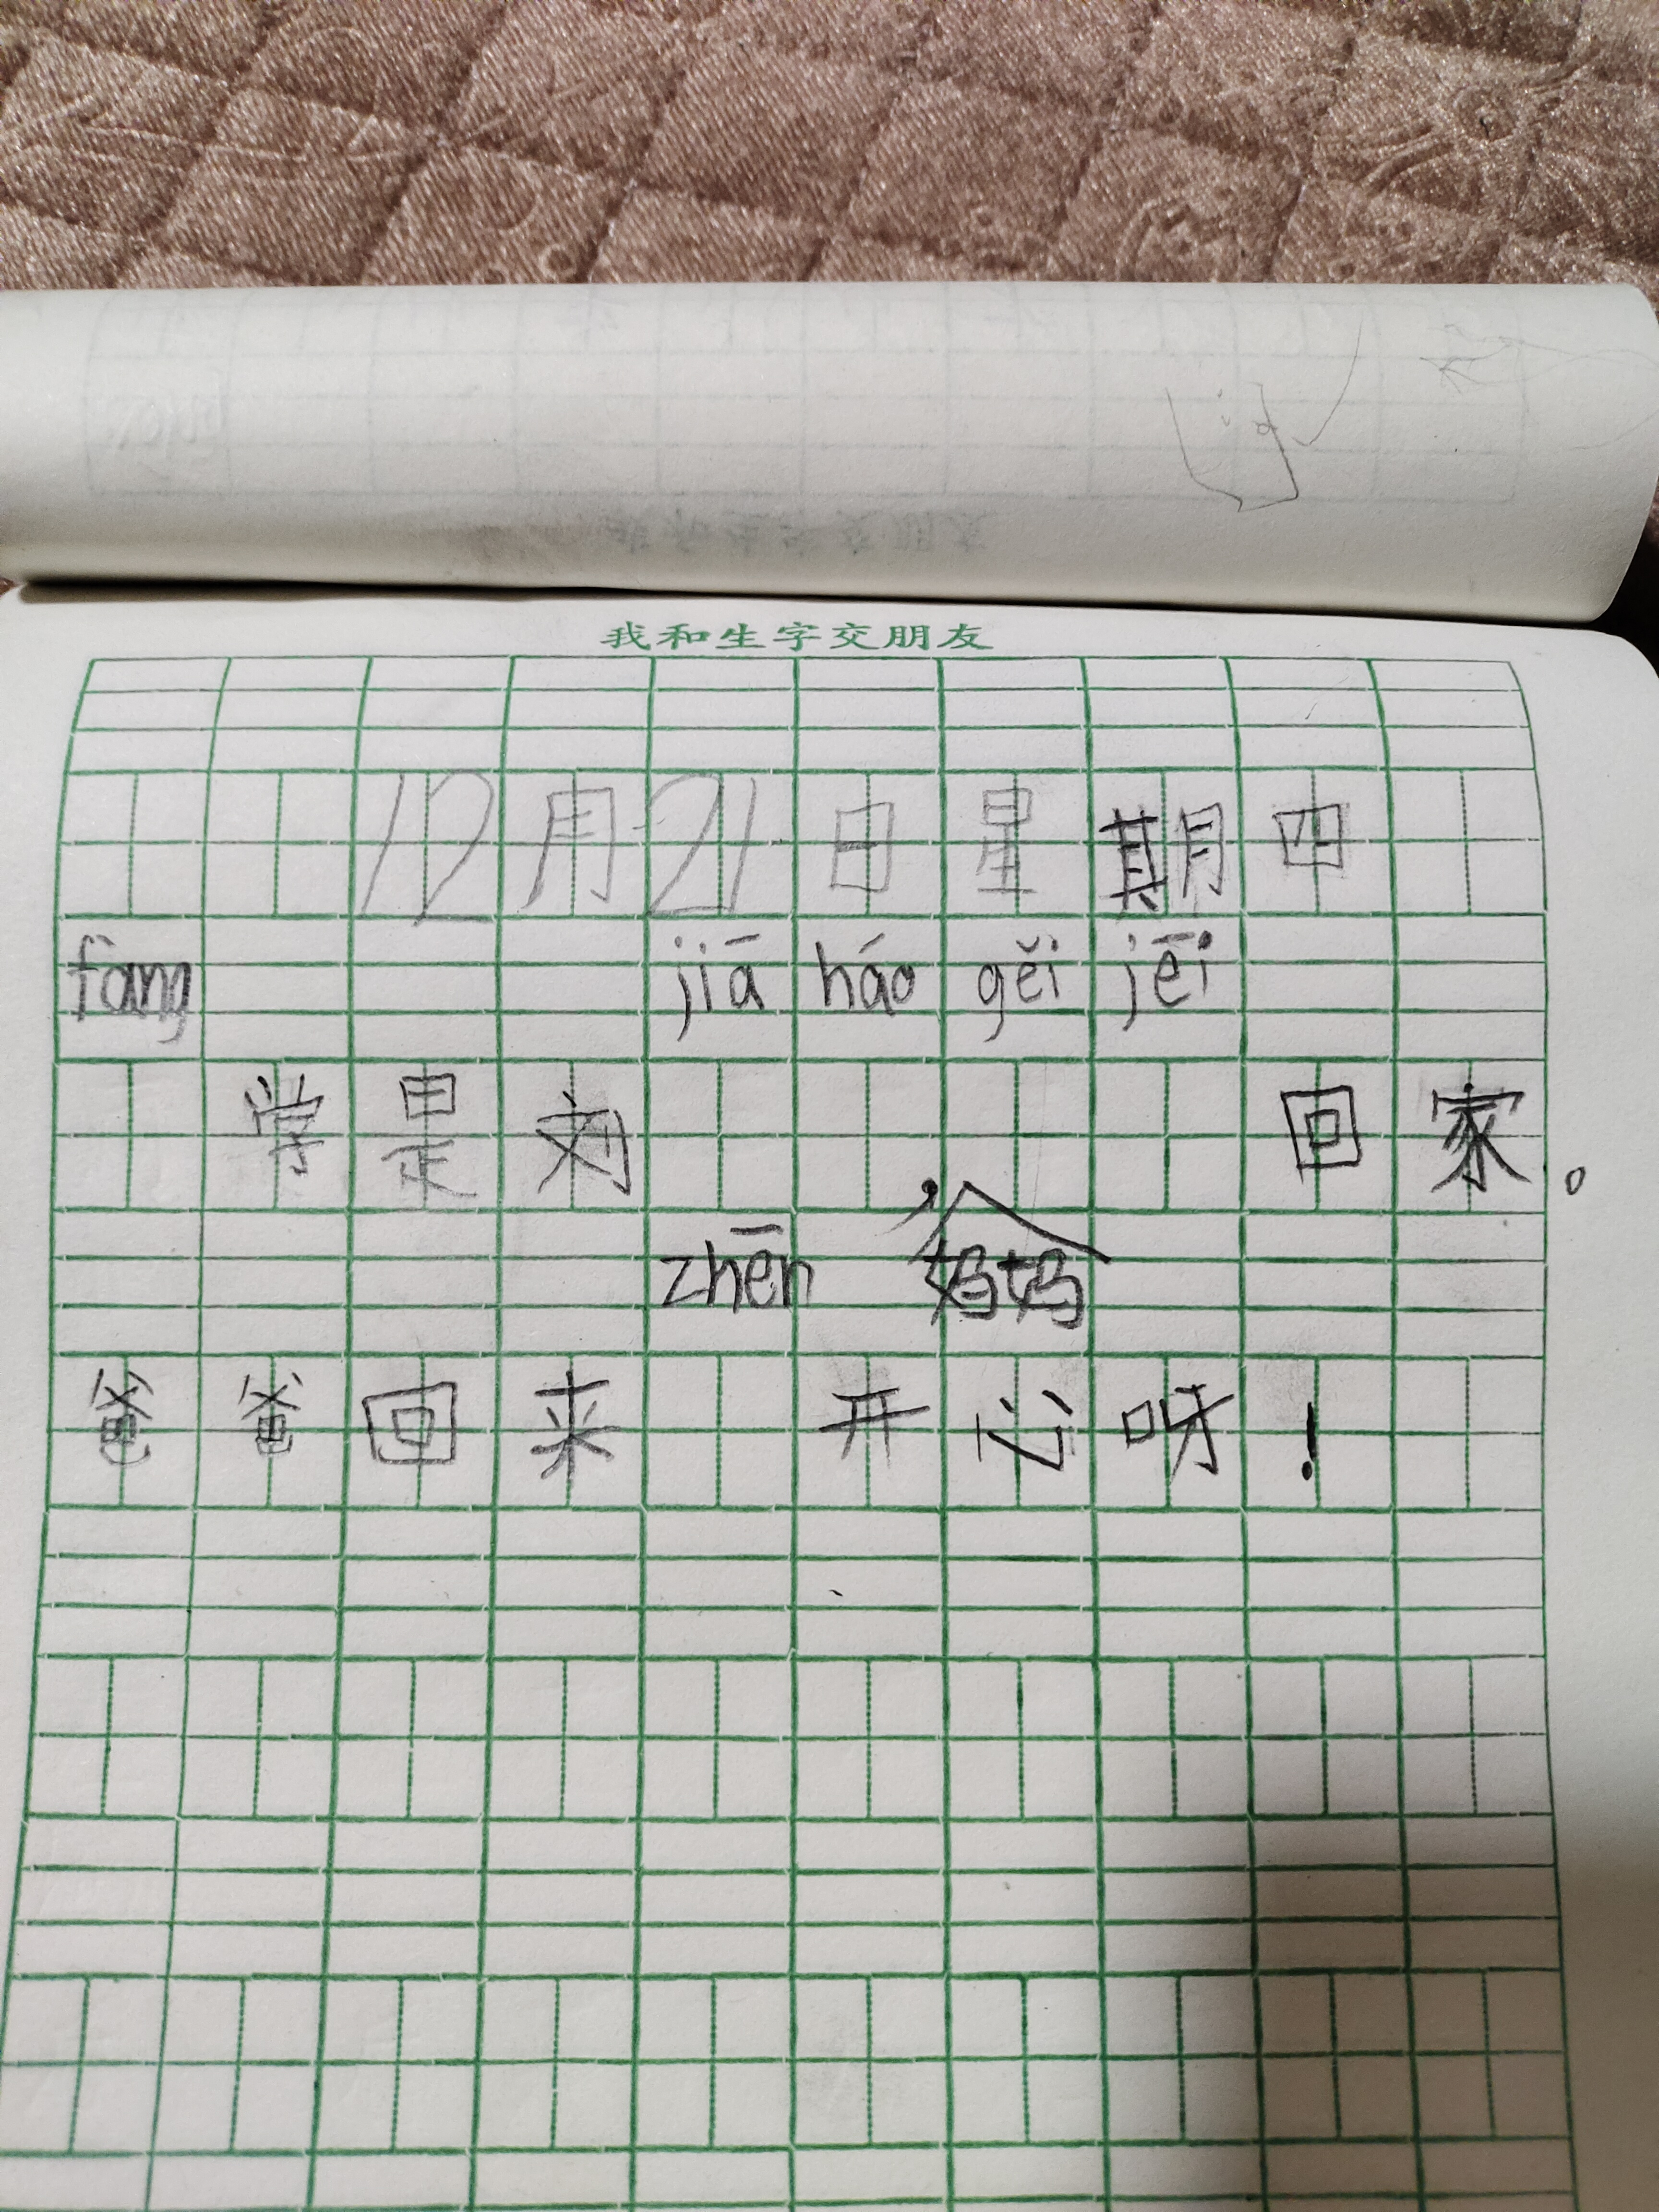 我和生字交朋友
12月21日星期四
fàng jiā háo gěi jēi
学是刘回家。
zhēn ,妈妈
爸爸回来开心呀!